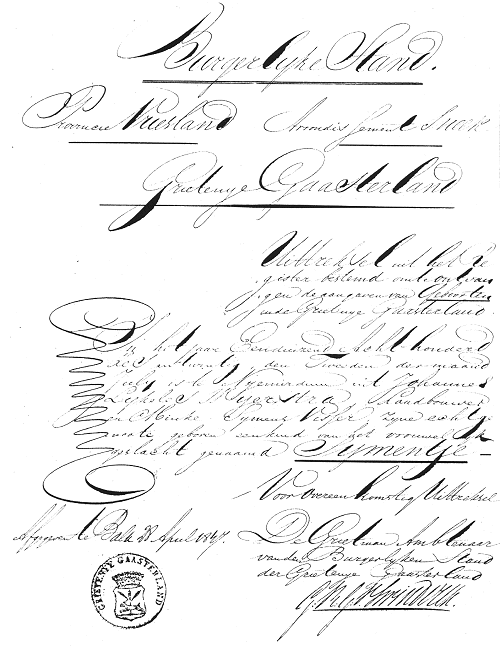 Burgerlyke Stand.
Provincie Vriesland Arrondissement Sneek
Grietenye Gaasterland
Uittreksel uit het Re
gister bestemd om te ontvan
gen de aangaven van Geboorten
in de Grietenye Gaasterland.
In het jaar Eenduizend Acht honderd
den Tweeden der maand
is te Nyemirdum uit Johannes
Meyerstra Landbouwer
en Minke Symens Visser zyne echtge
noote geboren een kind van het vrouwelyk
geslacht genaamd Symentje
Voor overeenkomstig Uittreksel
Afgegeven te Balk 28 April 1847.
De Grietman Ambtenaar
van den Burgerlyken Stand
der Grietenye Gaasterland
GRIETENYE GAASTERLAND